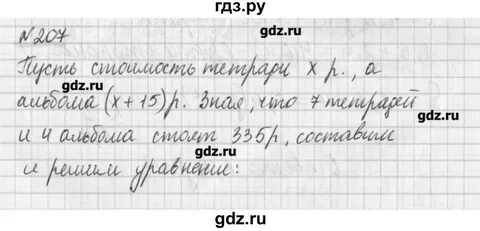 гдз.ру
№207
Пусть стоимость тетради x р., а
gdz.ru
альбома (x+15) р. Зная, что 7 тетрадей
gdz.ru
и 4 альбома стоят 335р, составим
gdz.ru
и решим уравнение:
gdz.ru
gdz.ru